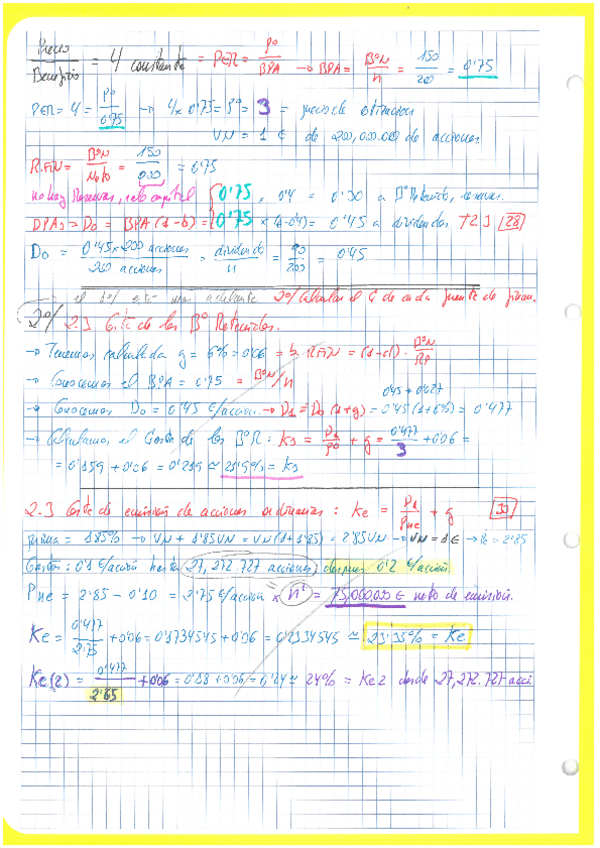 Precio / Beneficio = 4 constante = PER = Pº / BPA → BPA = BºN / n = 150 / 200 = 0'75
PER = 4 = Pº / 0'75 → 4 x 0'75 = Pº = 3 = precio de
VN = 1 € de 200,000.000 de acciones
RFIN = BºN / Neto = 150 / = 0'75
no hay Reservas, solo capital { 0'75 . 0'4 = 0'30 a Bº Retenido, reservas.
DPA = D0 = BPA (1-b) = 0'75 x (1-0'4) = 0'45 a dividendos T2.3 28
D0 = 0'45 x 200 acciones / 200 acciones = dividendo / n = 90 / 200 = 0'45
el 1º/ está más adelante 2º/ Calcular el C de cada fuente de finan.
2º/ 2.3 Coste de los Bº Retenidos.
→ Tenemos calculada g = 6% = 0'06 = b . RFIN = (1-d) . BºN / RP
→ Conocemos el BºA = 0'75 = BºN/n
0'45 + 0'027
→ Conocemos D0 = 0'45 €/acción. → D1 = D0 (1+g) = 0'45 (1+6%) = 0'477
→ Calculamos el Coste de los BºR: ks = D1 / Pº + g = 0'477 / 3 + 0'06 =
= 0'159 + 0'06 = 0'219 ≃ 21'9% = ks
2.3 Coste de emisión de acciones ordinarias: ke = D1 / Pne + g 30
prima = 185% → VN + 1'85VN = VN (1+1'85) = 2'85VN → VN = 1 € → = 2'85
Gastos: 0'1 €/acción hasta 27,272.727 acciones, después 0'2 €/acción
Pne = 2'85 - 0'10 = 2'75 €/acción x nº = 75,000,000 € neto de emisión.
Ke = 0'477 / 2'75 + 0'06 = 0'1734545 + 0'06 = 0'2334545 ≃ 23'35% = Ke
Ke(2) = 0'477 / 2'65 + 0'06 = 0'18 + 0'06 = 0'24 ≃ 24% = Ke2 desde 27,272.727 acci